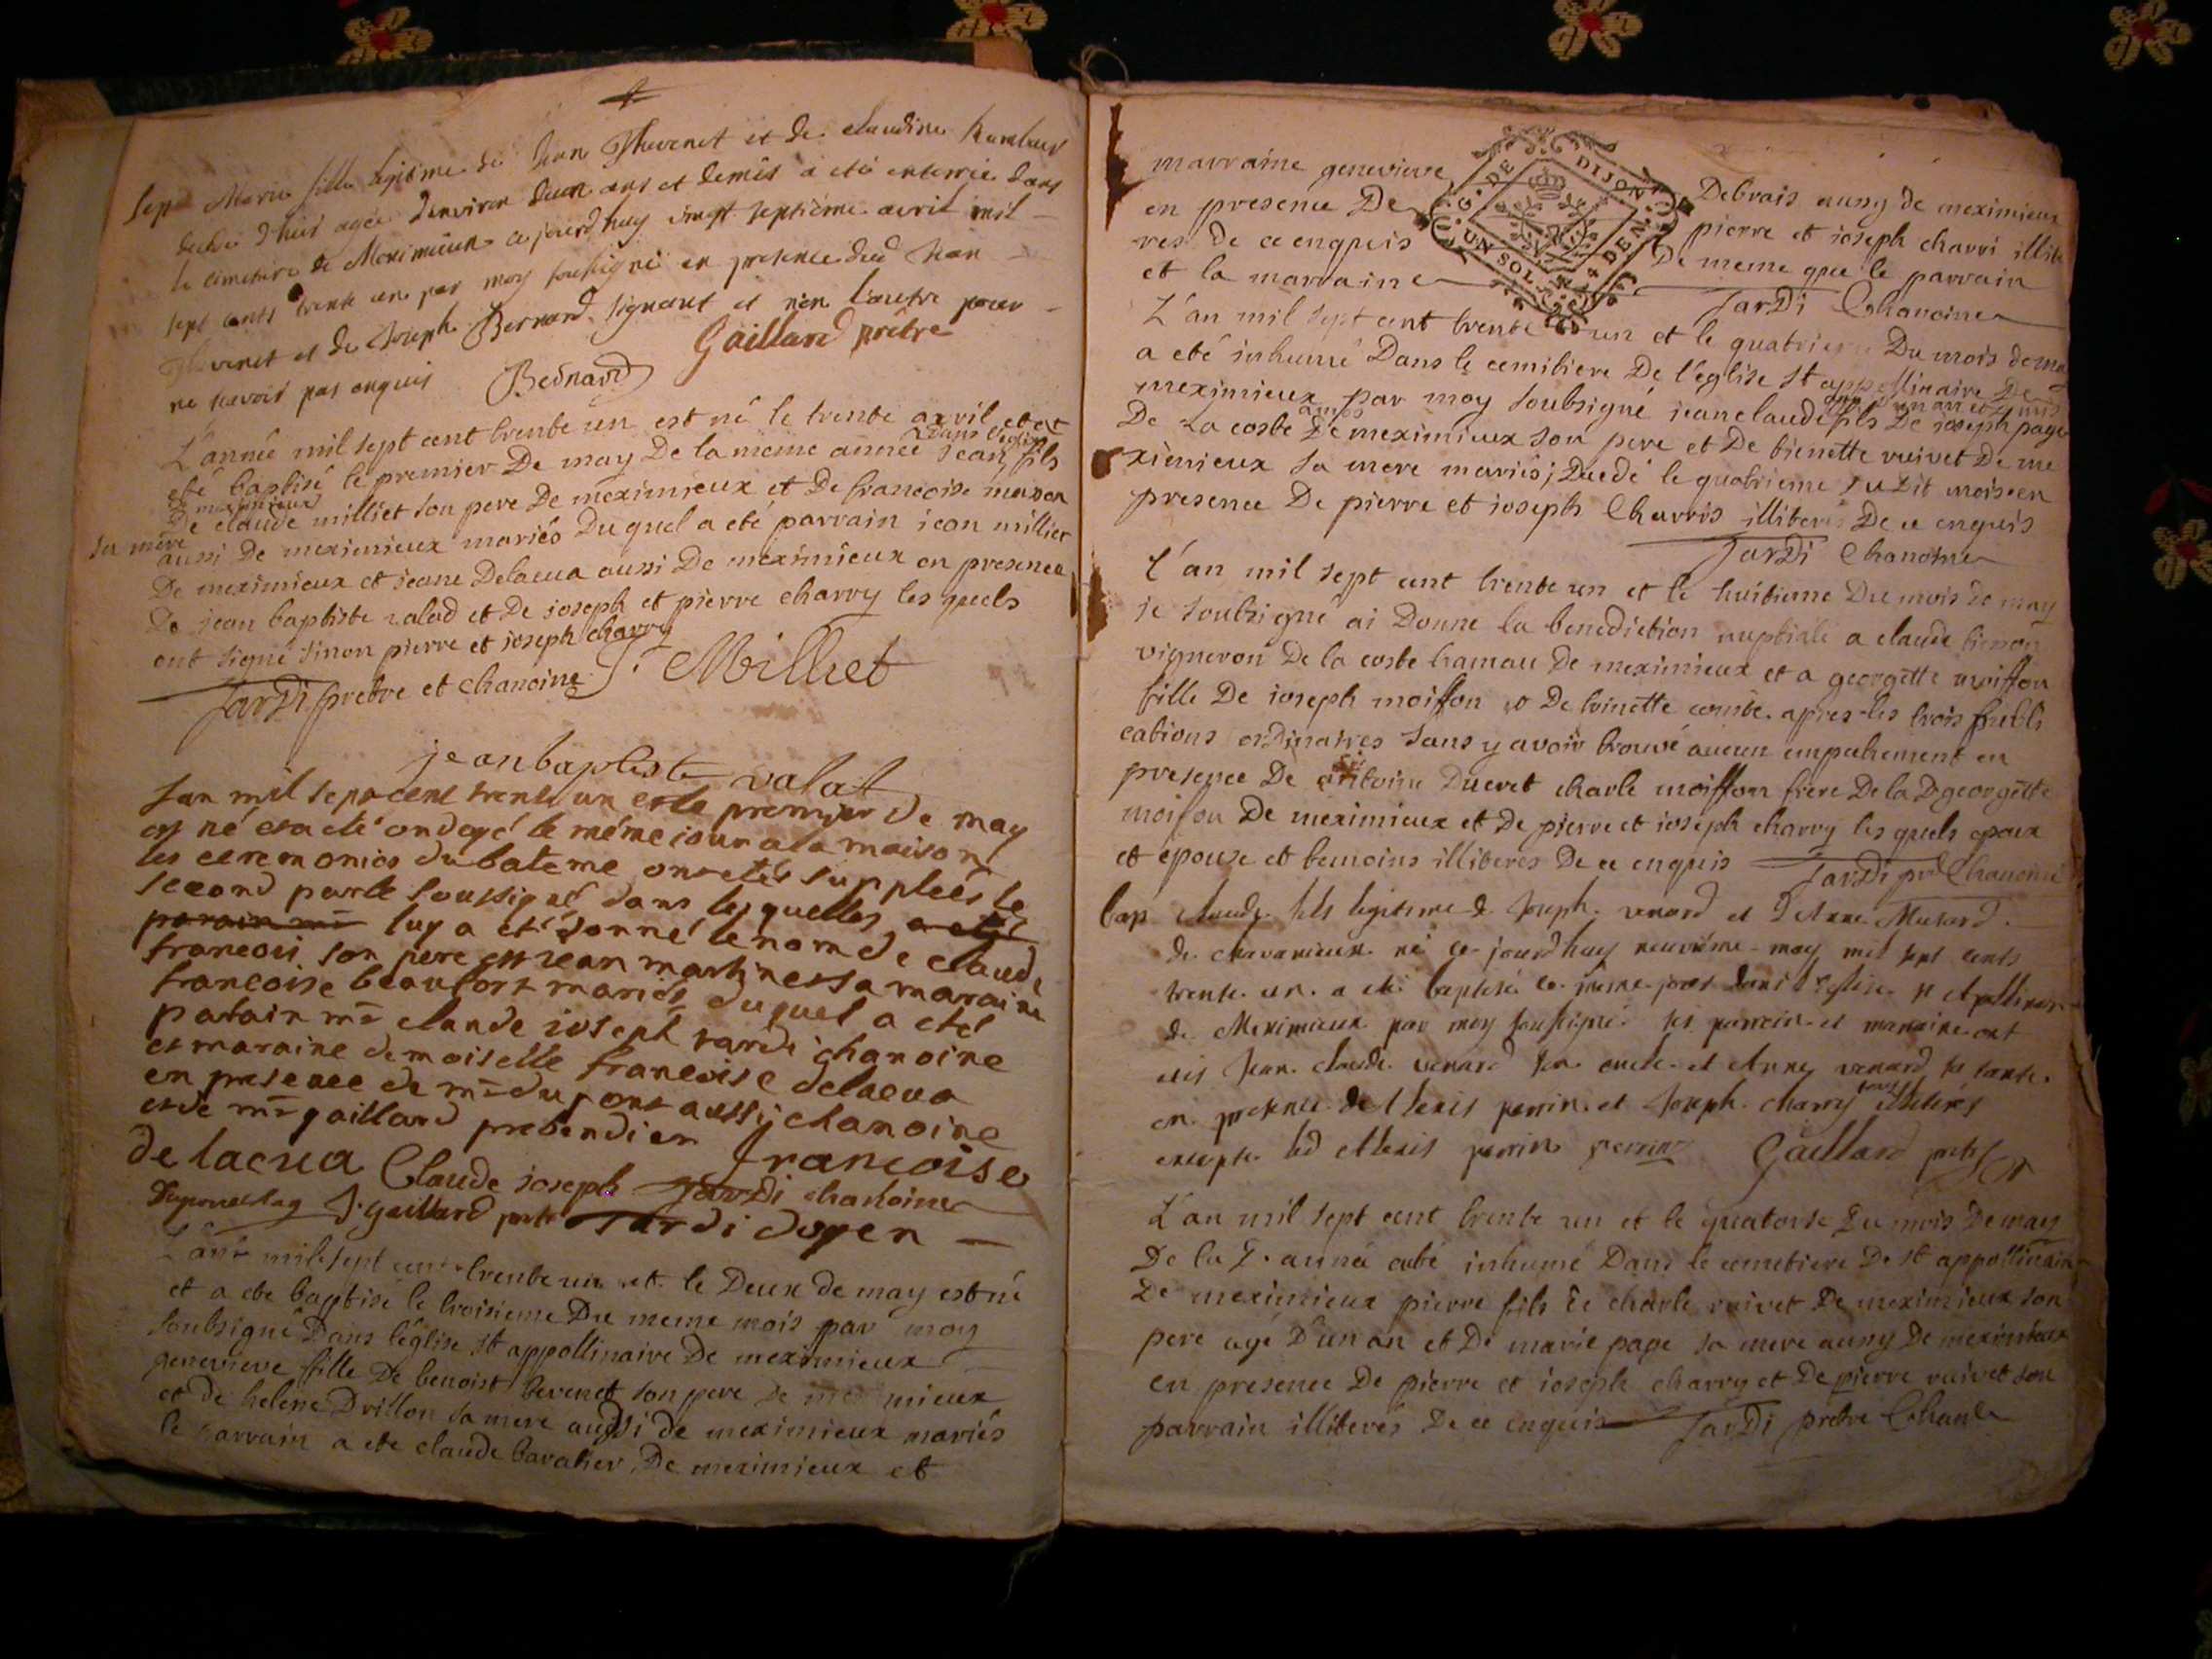 Sept Marie fille legitime de Jean Thevenet et de claudine
agée d'environ deux ans et demis a eté enterrée dans
le cimetiere de Meximieux ce jourd'huy vingt septième avril mil
sept cents trente un par moy soussigné en presence dud Jean
Thevenet et de Joseph Bernard signant et non l'autre pour
ne scavoir pas enquis Bernard Gaillard prêtre
L'année mil sept cent trente un est né le trente avril et et
dans l'eglise
eté baptisé le premier De may De la meme année Jean fils
de meximieux
De claude milliet son pere De meximieux et De francoise
sa mère
aussi De meximieux mariés Du quel a eté parrain jean millier
De meximieux et jeane Delacua aussi De meximieux en presence
De jean baptiste valad et De joseph et pierre charvy les quels
ont signé sinon pierre et joseph charvy
Jardi prebre et chanoine J. Milliet
jean baptiste valat
lan mil sept cent trente un et le premyer de may
est né et a eté ondoyé le méme jour a la maison
les ceremonies du bateme ont etés suppleés le
second par le soussigné dans les quelles a eté
parain mr luy a eté donné le nom de claude
francois son pere est jean martin et sa maraine
francoise beaufort mariés duquel a eté
parain mr claude joseph jardi chanoine
et maraine demoiselle francoise delacua
en presence de mr dupont aussi chanoine
et de mr gaillard prebendier
francoise
delacua Claude joseph Jardi chanoine
J. gaillard prtr Jardi doyen
L'an mil sept cent trente un et le Deux de may est né
et a ete baptisé le troisieme Du meme mois par moy
soubsigné Dans l'église st appollinaire De meximieux
genevieve fille De benoist tevenet son pere de meximieux
et de helene Drillon sa mere aussi de meximieux mariés
le parrain a ete claude bavatier De meximieux et
marraine genevieve Debrais aussy de meximieux
en presence De pierre et joseph charvi illite
res de ce enquis De meme que le parrain
et la marraine Jardi Chanoine
G. DE DIJON
UN SOL 4 DEN.
L'an mil sept cent trente un et le quatrieme Du mois de may
a eté inhumé Dans le cemitiere De l'église st appollinaire De
meximieux par moy soubsigné jean claude fils De joseph page
De La coste De meximieux son pere et De bienette vuivet De me
ximieux sa mere mariés; Decedé le quatrieme Dudit mois en
presence De pierre et joseph Charvis illiterés De ce enquis
Jardi Chanoine
L'an mil sept cent trente un et le huitieme Du mois de may
je soubsigné ai Donne la benediction nuptiale a claude
vigneron De la coste hameau De meximieux et a georgette moiffon
fille De joseph moiffon et De toinette comte apres les trois publi
cations ordinaires sans y avoir trouvé aucun empechement en
presence De antoine Ducret charle moiffon frere De la D georgette
moiffon De meximieux et De pierre et joseph charvy les quels epoux
et epouse et temoins illiteres De ce enquis Jardi ptre Chanoine
bap claude fils legitime de Joseph venard et d'Anne Musard
de chavanieux né ce jourd'huy neuvième may mil sept cents
trente un a eté baptisé le même jour dans l'eglise st Apollinaire
de Meximieux par moy soussigné ses parrein et marraine ont
etés Jean claude venard son oncle et Anne venard sa tante
en presence de Alexis perrin et Joseph charvy tous illiterés
excepte led Alexis perrin perrin Gaillard prtr
L'an mil sept cent trente un et le quatorse Du mois De may
De la D. année a eté inhumé Dans le cemetiere De st appollinaire
De meximieux pierre fils De charle vuivet De meximieux son
pere agé D'un an et De marie page sa mere aussy De meximieux
en presence De pierre et joseph charvy et De pierre vuivet son
parrain illiterés De ce enquis Jardi prebre Chan